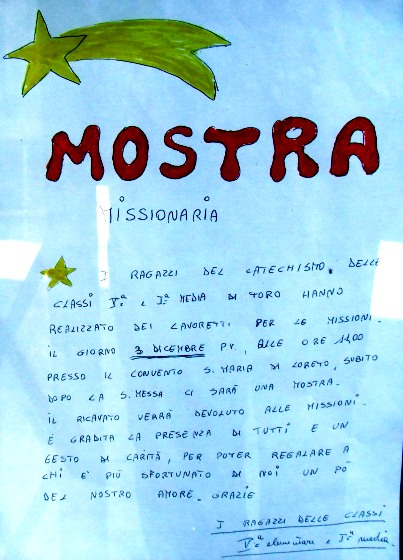 MOSTRA
MISSIONARIA
I RAGAZZI DEL CATECHISMO, DELLE
CLASSI Vª e Iª MEDIA DI TORO HANNO
REALIZZATO DEI LAVORETTI PER LE MISSIONI.
IL GIORNO 3 DICEMBRE P.V., ALLE ORE 11,00
PRESSO IL CONVENTO S. MARIA DI LORETO, SUBITO
DOPO LA S. MESSA CI SARÁ UNA MOSTRA.
IL RICAVATO VERRÁ DEVOLUTO ALLE MISSIONI.
É GRADITA LA PRESENZA DI TUTTI E UN
GESTO DI CARITÁ, PER POTER REGALARE A
CHI E' PIÚ SFORTUNATO DI NOI UN PÓ
DEL NOSTRO AMORE. GRAZIE
I RAGAZZI DELLE CLASSI
Vª elementare e Iª media.